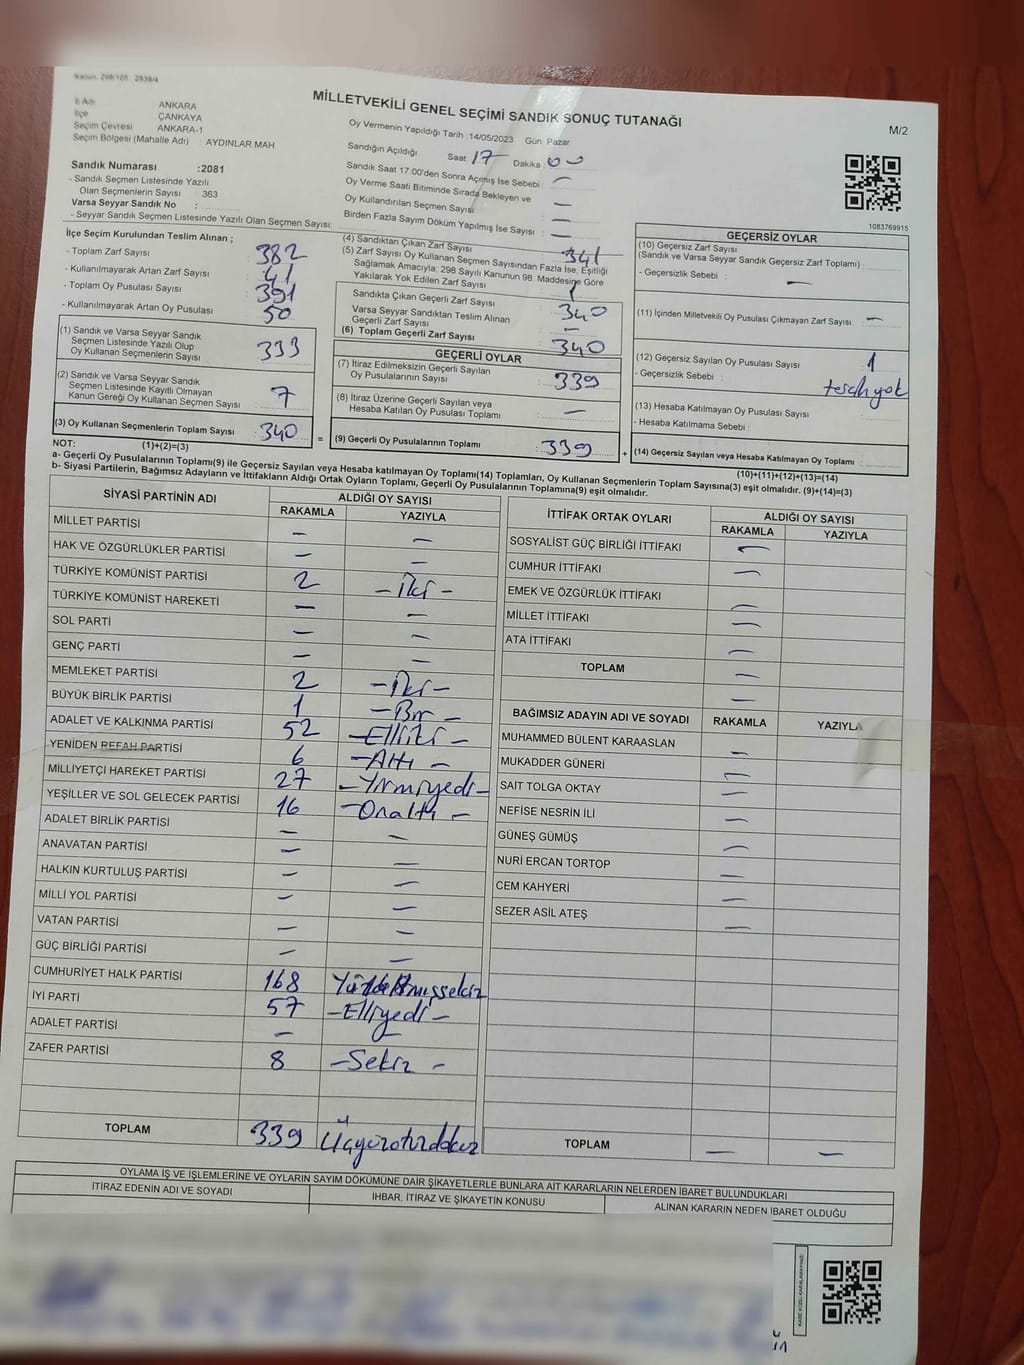 Kanun. 298/105 , 2839/4
MİLLETVEKİLİ GENEL SEÇİMİ SANDIK SONUÇ TUTANAĞI
M/2
İl Adı ANKARA
İlçe ÇANKAYA
Seçim Çevresi ANKARA-1
Seçim Bölgesi (Mahalle Adı) AYDINLAR MAH
Sandık Numarası :2081
- Sandık Seçmen Listesinde Yazılı
Olan Seçmenlerin Sayısı : 363
Varsa Seyyar Sandık No :
- Seyyar Sandık Seçmen Listesinde Yazılı Olan Seçmen Sayısı:
Oy Vermenin Yapıldığı Tarih : 14/05/2023 Gün Pazar
Sandığın Açıldığı Saat: 17 Dakika : 00
Sandık Saat 17:00'den Sonra Açılmış İse Sebebi : —
Oy Verme Saati Bitiminde Sırada Bekleyen ve
Oy Kullandırılan Seçmen Sayısı : —
Birden Fazla Sayım Döküm Yapılmış İse Sayısı : —
1083769915
İlçe Seçim Kurulundan Teslim Alınan ;
- Toplam Zarf Sayısı : 382
- Kullanılmayarak Artan Zarf Sayısı : 41
- Toplam Oy Pusulası Sayısı : 391
- Kullanılmayarak Artan Oy Pusulası : 50
(1) Sandık ve Varsa Seyyar Sandık
Seçmen Listesinde Yazılı Olup
Oy Kullanan Seçmenlerin Sayısı : 333
(2) Sandık ve Varsa Seyyar Sandık
Seçmen Listesinde Kayıtlı Olmayan
Kanun Gereği Oy Kullanan Seçmen Sayısı : 7
(3) Oy Kullanan Seçmenlerin Toplam Sayısı : 340 =
(4) Sandıktan Çıkan Zarf Sayısı : 341
(5) Zarf Sayısı Oy Kullanan Seçmen Sayısından Fazla İse, Eşitliği
Sağlamak Amacıyla; 298 Sayılı Kanunun 98. Maddesine Göre
Yakılarak Yok Edilen Zarf Sayısı : 1
Sandıkta Çıkan Geçerli Zarf Sayısı : 340
Varsa Seyyar Sandıktan Teslim Alınan
Geçerli Zarf Sayısı : —
(6) Toplam Geçerli Zarf Sayısı : 340
GEÇERLİ OYLAR
(7) İtiraz Edilmeksizin Geçerli Sayılan
Oy Pusulalarının Sayısı : 339
(8) İtiraz Üzerine Geçerli Sayılan veya
Hesaba Katılan Oy Pusulası Toplamı : —
(9) Geçerli Oy Pusulalarının Toplamı : 339 +
GEÇERSİZ OYLAR
(10) Geçersiz Zarf Sayısı
(Sandık ve Varsa Seyyar Sandık Geçersiz Zarf Toplamı) :
- Geçersizlik Sebebi : —
(11) İçinden Milletvekili Oy Pusulası Çıkmayan Zarf Sayısı : —
(12) Geçersiz Sayılan Oy Pusulası Sayısı : 1
- Geçersizlik Sebebi : tercih yok
(13) Hesaba Katılmayan Oy Pusulası Sayısı :
- Hesaba Katılmama Sebebi :
(14) Geçersiz Sayılan veya Hesaba Katılmayan Oy Toplamı :
NOT: (1)+(2)=(3)
(10)+(11)+(12)+(13)=(14)
a- Geçerli Oy Pusulalarının Toplamı(9) ile Geçersiz Sayılan veya Hesaba katılmayan Oy Toplamı(14) Toplamları, Oy Kullanan Seçmenlerin Toplam Sayısına(3) eşit olmalıdır. (9)+(14)=(3)
b- Siyasi Partilerin, Bağımsız Adayların ve İttifakların Aldığı Ortak Oyların Toplamı, Geçerli Oy Pusulalarının Toplamına(9) eşit olmalıdır.
SİYASİ PARTİNİN ADI ALDIĞI OY SAYISI
RAKAMLA YAZIYLA
MİLLET PARTİSİ — —
HAK VE ÖZGÜRLÜKLER PARTİSİ — —
TÜRKİYE KOMÜNİST PARTİSİ 2 - İki -
TÜRKİYE KOMÜNİST HAREKETİ — —
SOL PARTİ — —
GENÇ PARTİ — —
MEMLEKET PARTİSİ 2 - İki -
BÜYÜK BİRLİK PARTİSİ 1 - Bir -
ADALET VE KALKINMA PARTİSİ 52 - Elliiki -
YENİDEN REFAH PARTİSİ 6 - Altı -
MİLLİYETÇİ HAREKET PARTİSİ 27 - Yirmiyedi -
YEŞİLLER VE SOL GELECEK PARTİSİ 16 - Onaltı -
ADALET BİRLİK PARTİSİ — —
ANAVATAN PARTİSİ — —
HALKIN KURTULUŞ PARTİSİ — —
MİLLİ YOL PARTİSİ — —
VATAN PARTİSİ — —
GÜÇ BİRLİĞİ PARTİSİ — —
CUMHURİYET HALK PARTİSİ 168 Yüzaltmışsekiz
İYİ PARTİ 57 - Elliyedi -
ADALET PARTİSİ — —
ZAFER PARTİSİ 8 - Sekiz -
TOPLAM 339 Üçyüzotuzdokuz
İTTİFAK ORTAK OYLARI ALDIĞI OY SAYISI
RAKAMLA YAZIYLA
SOSYALİST GÜÇ BİRLİĞİ İTTİFAKI —
CUMHUR İTTİFAKI —
EMEK VE ÖZGÜRLÜK İTTİFAKI —
MİLLET İTTİFAKI —
ATA İTTİFAKI —
TOPLAM —
—
BAĞIMSIZ ADAYIN ADI VE SOYADI RAKAMLA YAZIYLA
MUHAMMED BÜLENT KARAASLAN —
MUKADDER GÜNERİ —
SAİT TOLGA OKTAY —
NEFİSE NESRİN İLİ —
GÜNEŞ GÜMÜŞ —
NURİ ERCAN TORTOP —
CEM KAHYERİ —
SEZER ASİL ATEŞ —
TOPLAM — —
OYLAMA İŞ VE İŞLEMLERİNE VE OYLARIN SAYIM DÖKÜMÜNE DAİR ŞİKAYETLERLE BUNLARA AİT KARARLARIN NELERDEN İBARET BULUNDUKLARI
İTİRAZ EDENİN ADI VE SOYADI İHBAR, İTİRAZ VE ŞİKAYETİN KONUSU ALINAN KARARIN NEDEN İBARET OLDUĞU